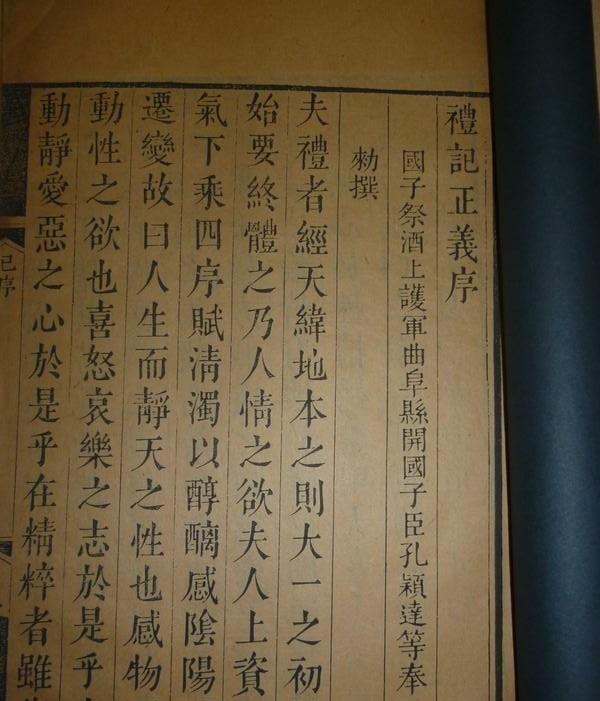 禮記正義序
國子祭酒上護軍曲阜縣開國子臣孔穎達等奉
勑撰
夫禮者經天緯地本之則大一之初
始要終體之乃人情之欲夫人上資
氣下乘四序賦清濁以醇醨感陰陽
遷變故曰人生而靜天之性也感物
動性之欲也喜怒哀樂之志於是乎
動靜愛惡之心於是乎在精粹者雖
記序